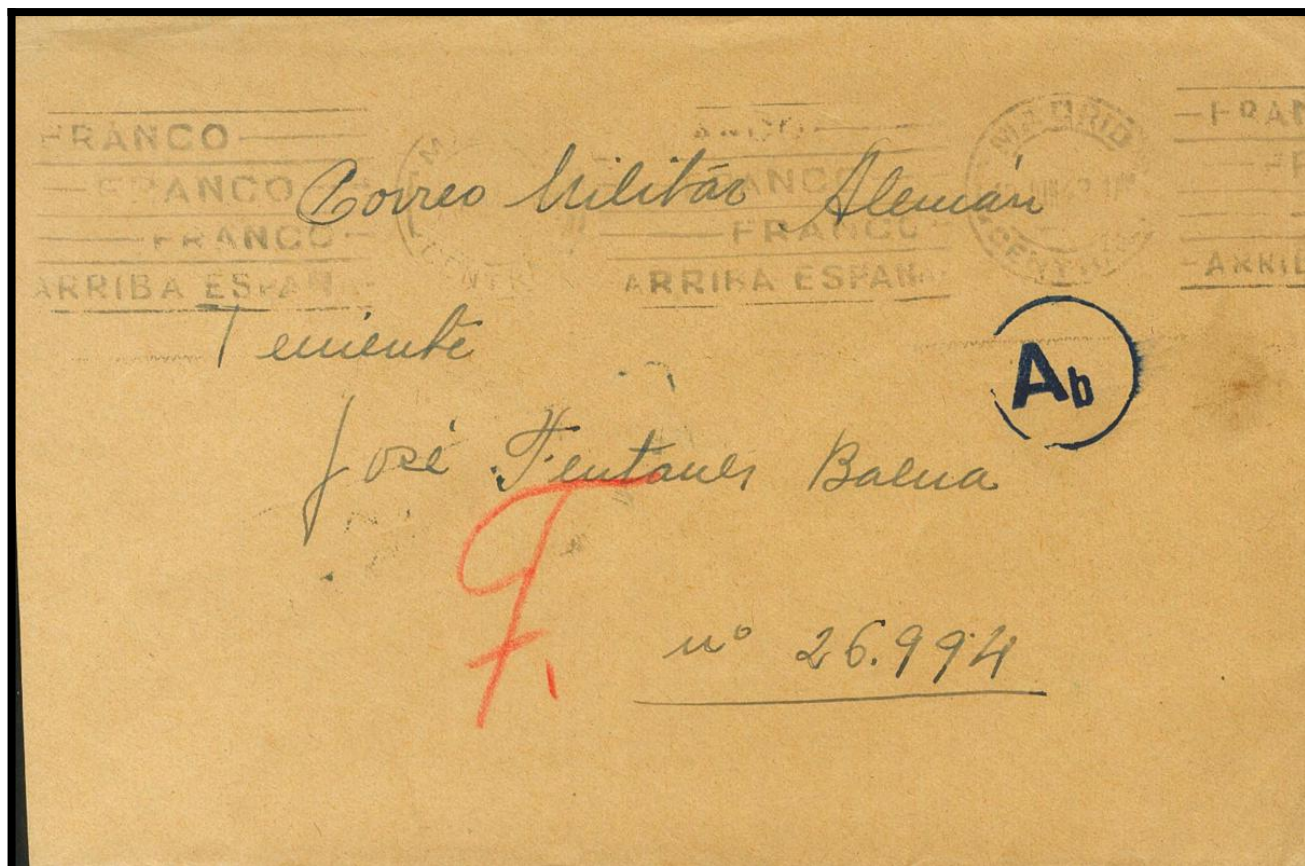 FRANCO
FRANCO
FRANCO
ARRIBA ESPAÑA
FRANCO
ARRIBA ESPAÑA
MADRID
Correo Militar Alemán
Teniente
Ab
José Fentanes Baena
F.
nº 26.994